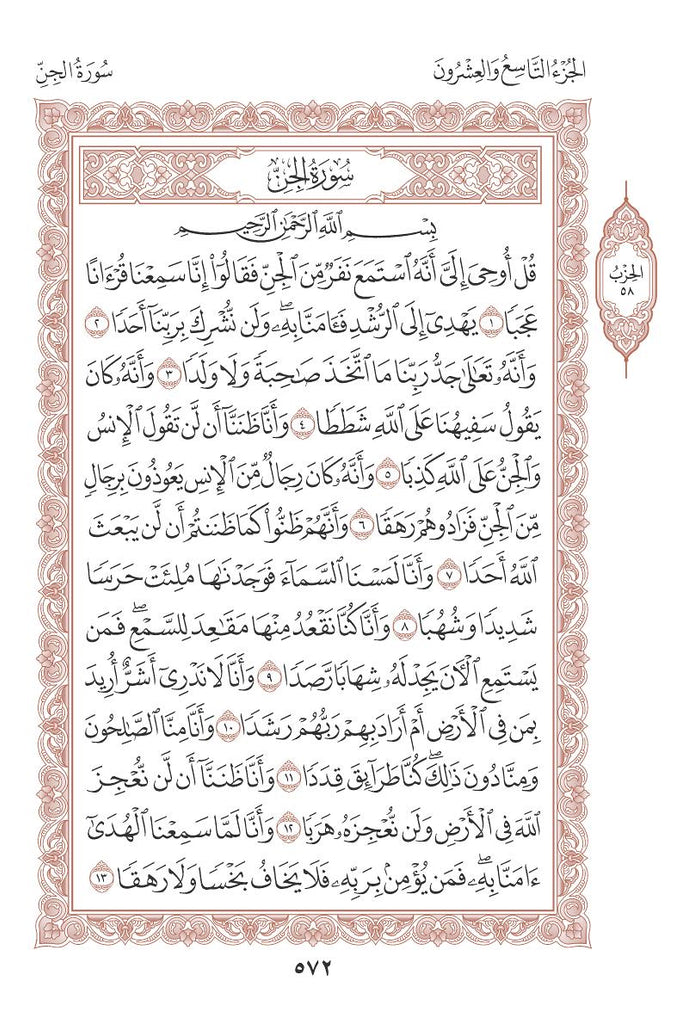 الجُزْءُ التَّاسِعُ وَالعِشْرُونَ
سُورَةُ الجِنِّ
سُورَةُ الجِنِّ
بِسْمِ ٱللَّهِ ٱلرَّحْمَٰنِ ٱلرَّحِيمِ
قُلْ أُوحِيَ إِلَيَّ أَنَّهُ ٱسْتَمَعَ نَفَرٌ مِّنَ ٱلْجِنِّ فَقَالُوٓا۟ إِنَّا سَمِعْنَا قُرْءَانًا
عَجَبًا ١ يَهْدِىٓ إِلَى ٱلرُّشْدِ فَـَٔامَنَّا بِهِۦ ۖ وَلَن نُّشْرِكَ بِرَبِّنَآ أَحَدًا ٢
وَأَنَّهُۥ تَعَٰلَىٰ جَدُّ رَبِّنَا مَا ٱتَّخَذَ صَٰحِبَةً وَلَا وَلَدًا ٣ وَأَنَّهُۥ كَانَ
يَقُولُ سَفِيهُنَا عَلَى ٱللَّهِ شَطَطًا ٤ وَأَنَّا ظَنَنَّآ أَن لَّن تَقُولَ ٱلْإِنسُ
وَٱلْجِنُّ عَلَى ٱللَّهِ كَذِبًا ٥ وَأَنَّهُۥ كَانَ رِجَالٌ مِّنَ ٱلْإِنسِ يَعُوذُونَ بِرِجَالٍ
مِّنَ ٱلْجِنِّ فَزَادُوهُمْ رَهَقًا ٦ وَأَنَّهُمْ ظَنُّوا۟ كَمَا ظَنَنتُمْ أَن لَّن يَبْعَثَ
ٱللَّهُ أَحَدًا ٧ وَأَنَّا لَمَسْنَا ٱلسَّمَآءَ فَوَجَدْنَٰهَا مُلِئَتْ حَرَسًا
شَدِيدًا وَشُهُبًا ٨ وَأَنَّا كُنَّا نَقْعُدُ مِنْهَا مَقَٰعِدَ لِلسَّمْعِ ۖ فَمَن
يَسْتَمِعِ ٱلْـَٔانَ يَجِدْ لَهُۥ شِهَابًا رَّصَدًا ٩ وَأَنَّا لَا نَدْرِىٓ أَشَرٌّ أُرِيدَ
بِمَن فِى ٱلْأَرْضِ أَمْ أَرَادَ بِهِمْ رَبُّهُمْ رَشَدًا ١٠ وَأَنَّا مِنَّا ٱلصَّٰلِحُونَ
وَمِنَّا دُونَ ذَٰلِكَ ۖ كُنَّا طَرَآئِقَ قِدَدًا ١١ وَأَنَّا ظَنَنَّآ أَن لَّن نُّعْجِزَ
ٱللَّهَ فِى ٱلْأَرْضِ وَلَن نُّعْجِزَهُۥ هَرَبًا ١٢ وَأَنَّا لَمَّا سَمِعْنَا ٱلْهُدَىٰٓ
ءَامَنَّا بِهِۦ ۖ فَمَن يُؤْمِنۢ بِرَبِّهِۦ فَلَا يَخَافُ بَخْسًا وَلَا رَهَقًا ١٣
الحِزْبُ
٥٨
٥٧٢